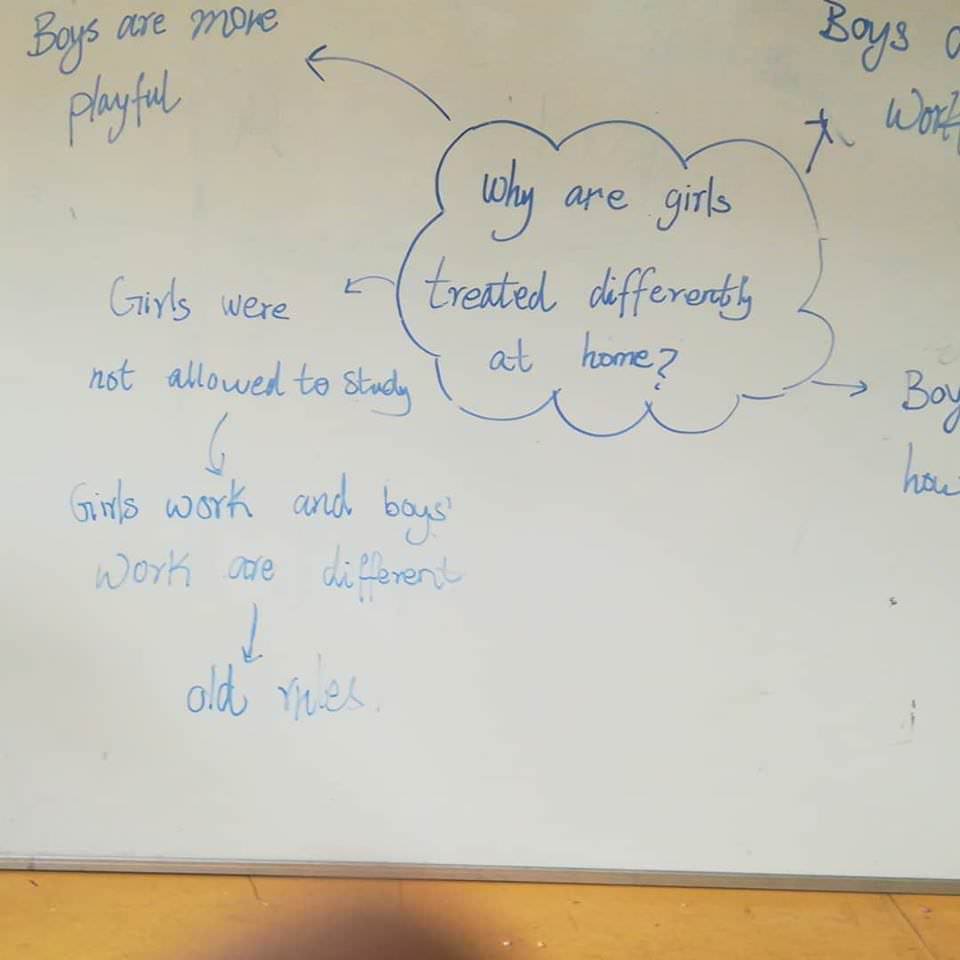 Boys are more
playful
Why are girls
treated differently
at home?
Girls were
not allowed to study
Girls work and boys'
work are different
old rules.
Boys
Work
Boy